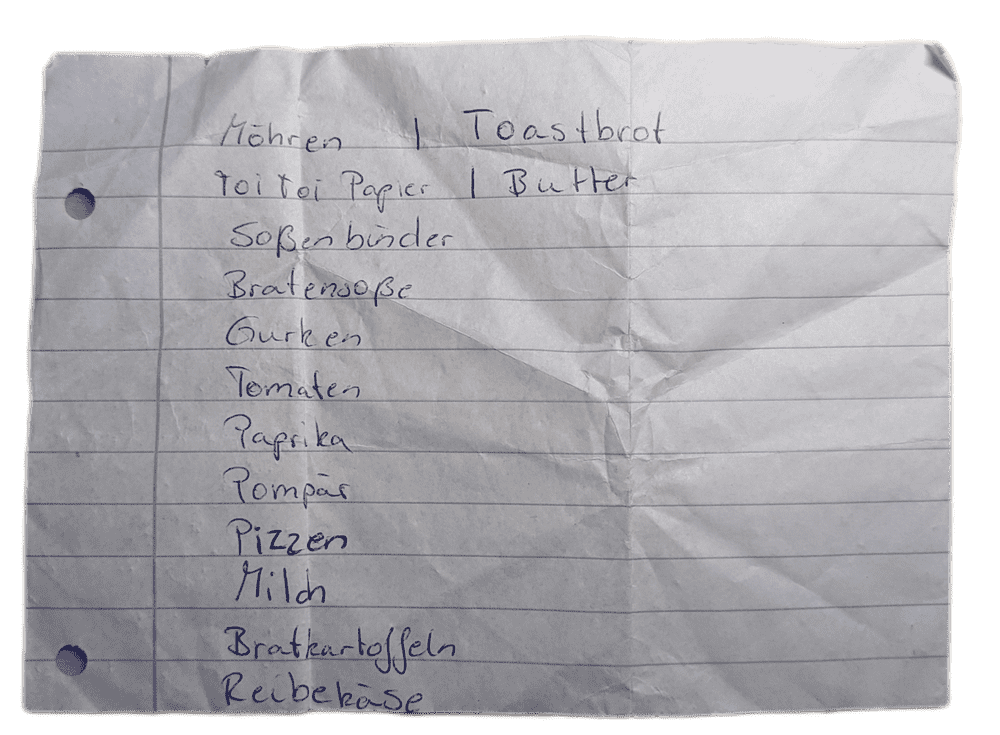 Möhren | Toastbrot
Toi Toi Papier | Butter
Soßenbinder
Bratensoße
Gurken
Tomaten
Paprika
Pompär
Pizzen
Milch
Bratkartoffeln
Reibekäse